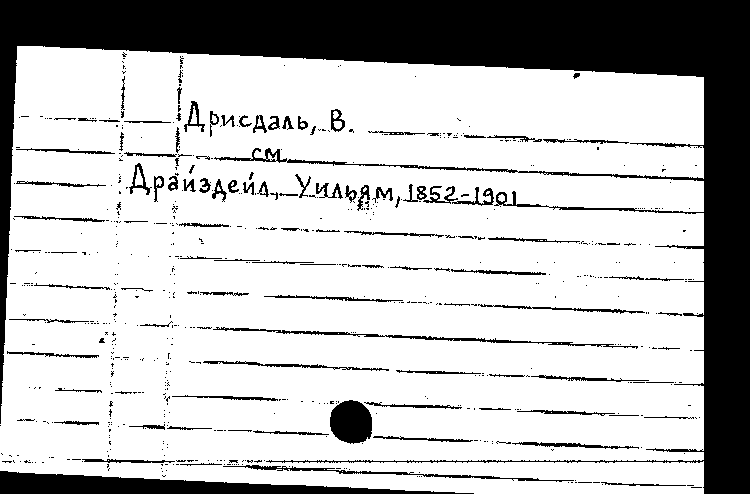 Дрисдаль, В.
см
Драйздейл, Уильям, 1852-1901